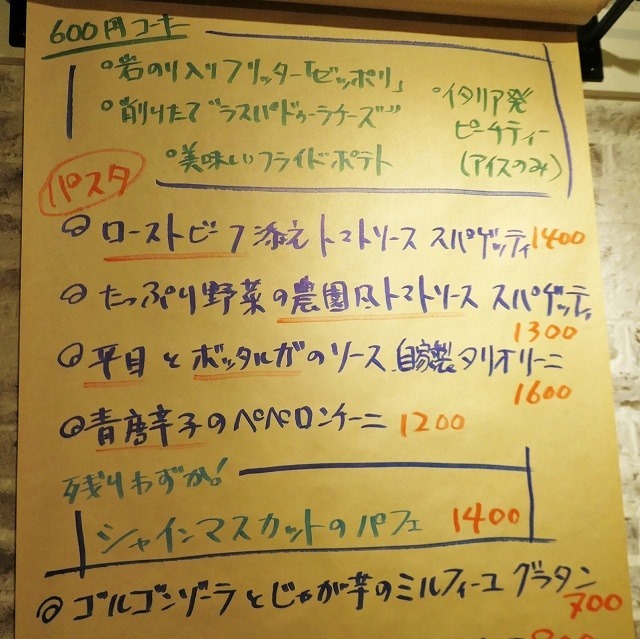 600円コーナー
○岩のり入りフリッター「ゼッポリ」
○削りたて"ラスパドゥーラチーズ"
○美味しいフライドポテト
○イタリア発
ピーチティー
(アイスのみ)
パスタ
◎ローストビーフ添えトマトソース スパゲッティ 1400
◎たっぷり野菜の農園風トマトソース スパゲッティ
1300
◎平目とボッタルガのソース 自家製タリオリーニ
1600
◎青唐辛子のペペロンチーニ 1200
残りわずか!
シャインマスカットのパフェ 1400
◎ゴルゴンゾーラとじゃが芋のミルフィーユ グラタン
700